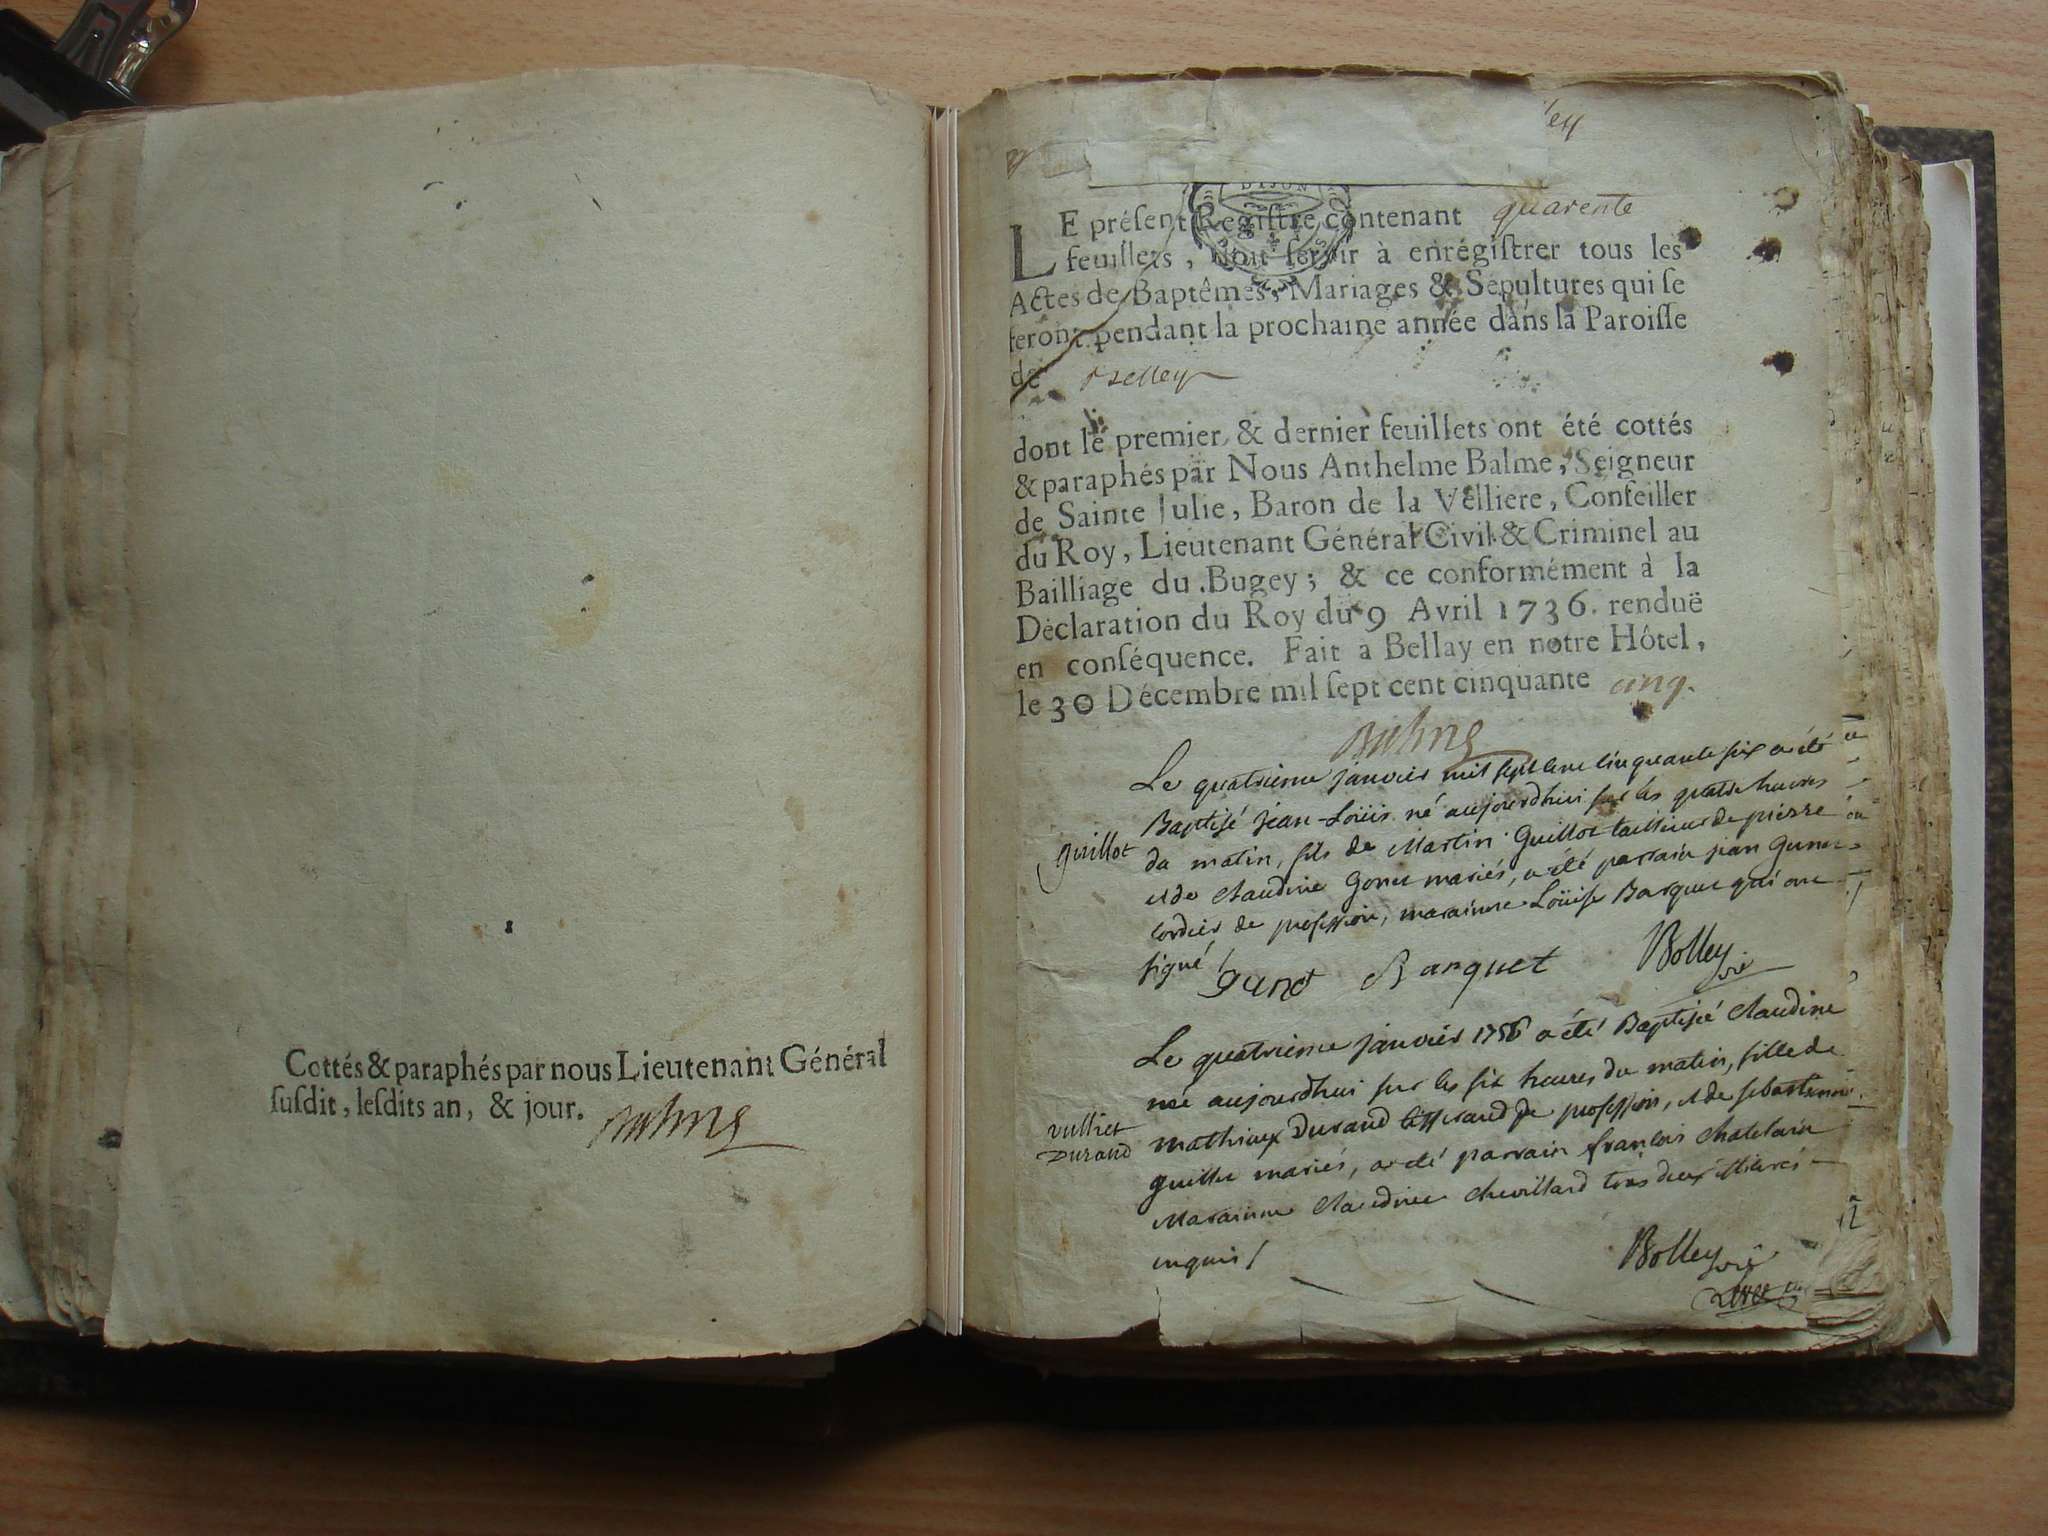 Cottés & paraphés par nous Lieutenant Général
ſuſdit, leſdits an, & jour.
DIJON
LE préſent Regiſtre contenant quarente
feuillets, doit ſervir à enrégiſtrer tous les
Actes de Baptêmes, Mariages & Sépultures qui ſe
feront pendant la prochaine année dans la Paroiſſe
de Belley
dont le premier & dernier feuillets ont été cottés
& paraphés par Nous Anthelme Balme, Seigneur
de Sainte Julie, Baron de la Velliere, Conſeiller
du Roy, Lieutenant Général Civil & Criminel au
Bailliage du Bugey; & ce conformément à la
Déclaration du Roy du 9 Avril 1736. renduë
en conſéquence. Fait a Bellay en notre Hôtel,
le 30 Décembre mil ſept cent cinquante cinq.
Le quatrieme janvier mil sept cent cinquante six a été
Baptisé jean-Loüis né aujourdhui sur les quatre heures
guillot
du matin, fils de Martin Guillot tailleur de pierre
et de Claudine Gonet mariés, a été parrain jean Gunet
cordier de profession, maraine Loüise Barquet qui ont
signé /
Gunet Barquet Bolley vic
Le quatrieme janvier 1756 a été Baptisée Claudine
née aujourdhui sur les six heures du matin, fille de
vulliet
Durand
mathieux Durand tisserand de profession, et de sebastienne
guillet mariés, a été parrain françois Chatelain
Maraine Claudine Chevillard tous deux illiterés
enquis /
Bolley vic